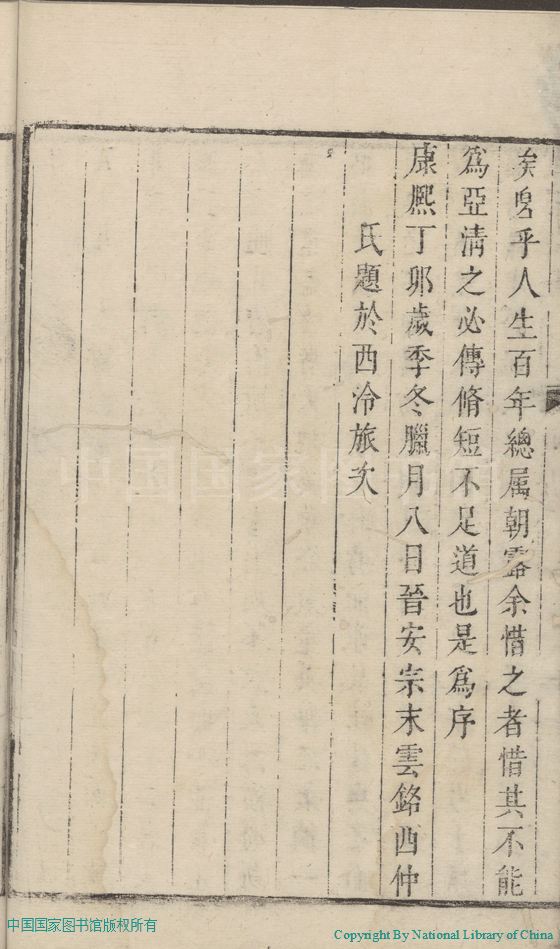 矣嗟乎人生百年總属朝露余惜之者惜其不能
為亞清之必傳脩短不足道也是為序
康熈丁卯歲季冬臘月八日晉安宗末雲銘西仲
氏題於西泠旅次
中国国家图书馆版权所有
Copyright By National Library of China